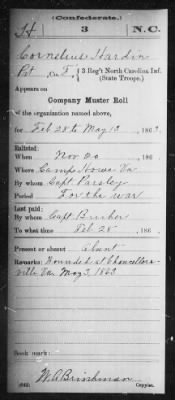 (Confederate.)
H 3 N.C.
Cornelius Hardin
Pvt, Co. F, 3 Reg't North Carolina Inf.
(State Troops.)
Appears on
Company Muster Roll
of the organization named above,
for Feb 28 to May 10, 186
Enlisted:
When Nov 20, 186
Where Camp Howes Va
By whom Capt Parsley
Period For the war
Last paid:
By whom Capt
To what time Feb 28, 186
Present or absent Absent
Remarks: Wounded at Chancellors-
ville Va May 3, 1863
Book mark:
W A Brinkman
Copyist.